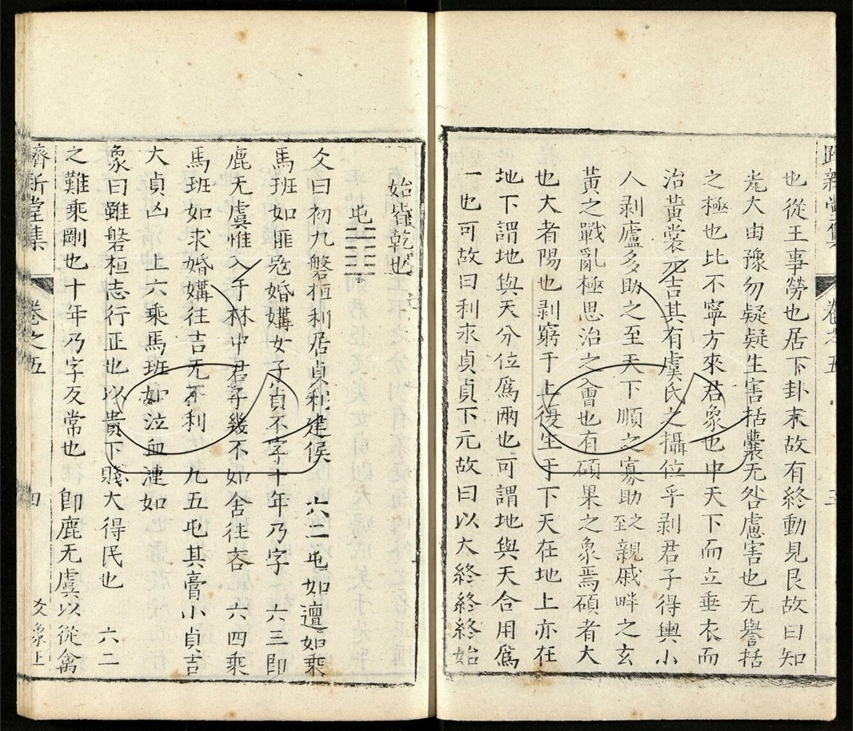 也從王事勞也居下卦末故有終動見艮故曰知
光大由豫勿疑疑生害括囊无咎慮害也无譽括
之極也比不寧方來君象也中天下而立垂衣而
治黃裳元吉其有虞氏之攝位乎剥君子得輿小
人剥廬多助之至天下順之寡助之至親戚畔之玄
黃之戰亂極思治之會也有碩果之象焉碩者大
也大者陽也剥窮于上復生于下天在地上亦在
地下謂地與天分位爲兩也可謂地與天合用爲
一也可故曰利永貞貞下元故曰以大終終終始
堂集
卷之五
三
始皆乾也
屯
爻曰初九磐桓利居貞利建侯 六二屯如邅如乘
馬班如匪宼婚媾女子貞不字十年乃字 六三即
鹿无虞惟入于林中君子幾不如舍往吝 六四乘
馬班如求婚媾往吉无不利 九五屯其膏小貞吉
大貞凶 上六乘馬班如泣血漣如
象曰雖磐桓志行正也以貴下賤大得民也 六二
之難乘剛也十年乃字反常也 即鹿无虞以從禽
新堂集
卷之五
四
爻象上